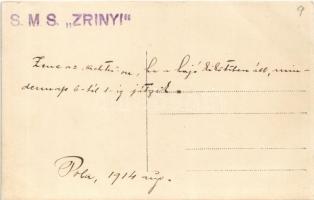 S. M. S. „ZRINYI"
9
Zene az , ha a hajó kikötőben áll, min-
dennap 6-tól 1-ig játszik.
Pola, 1914